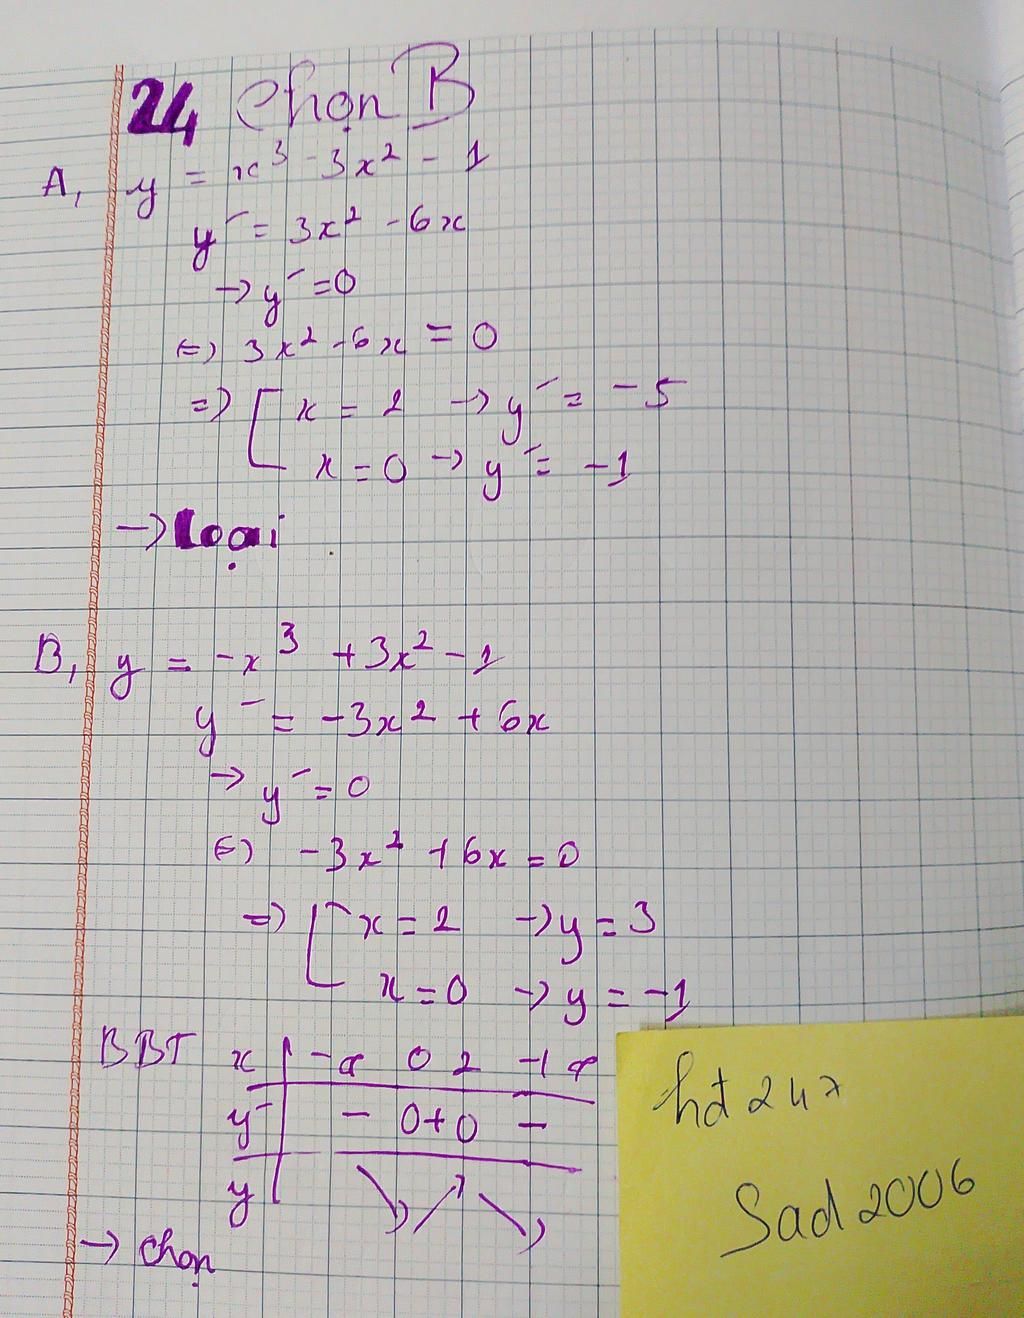 24 Chọn B
A, y = x³ - 3x² - 1
y' = 3x² - 6x
→ y' = 0
⇔ 3x² - 6x = 0
⇒ [ x = 2 → y' = -5
x = 0 → y' = -1
→ Loại
B, y = -x³ + 3x² - 1
y' = -3x² + 6x
→ y' = 0
⇔ -3x² + 6x = 0
⇒ [ x = 2 → y = 3
x = 0 → y = -1
BBT x | -∞ 0 2 +∞
y' | - 0 + 0 -
y | ↘ ↗ ↘
→ chọn
hđ 247
Sad 2006